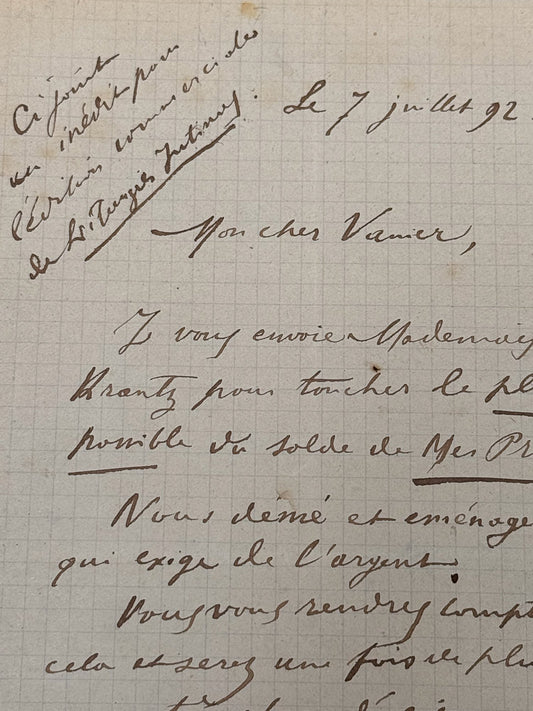 Ci joint
un inédit pour
l'édition commerciale
de Liturgies Intimes.
Le 7 juillet 92.
Mon cher Vanier,
J vous envoie Mademois
Krantz pour toucher le pl
possible du solde de Mes Pr
Nous démé et eménage
qui exige de l'argent.
Vous vous rendrez compt
cela et serez une fois de plu